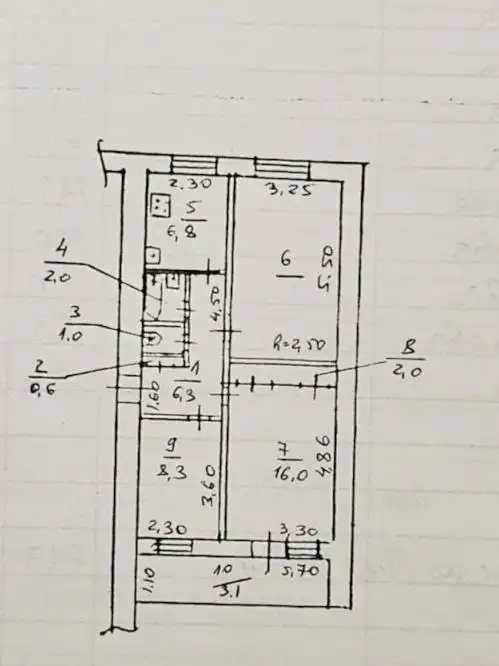 2.30
3,25
5
6,8
6
5,50
4
2.0
4,50
3
1.0
h=2,50
8
2,0
2
0,6
1
6,3
1.60
9
8,3
3,60
7
16,0
4,86
2,30
3,30
1.10
10
3.1
5,70